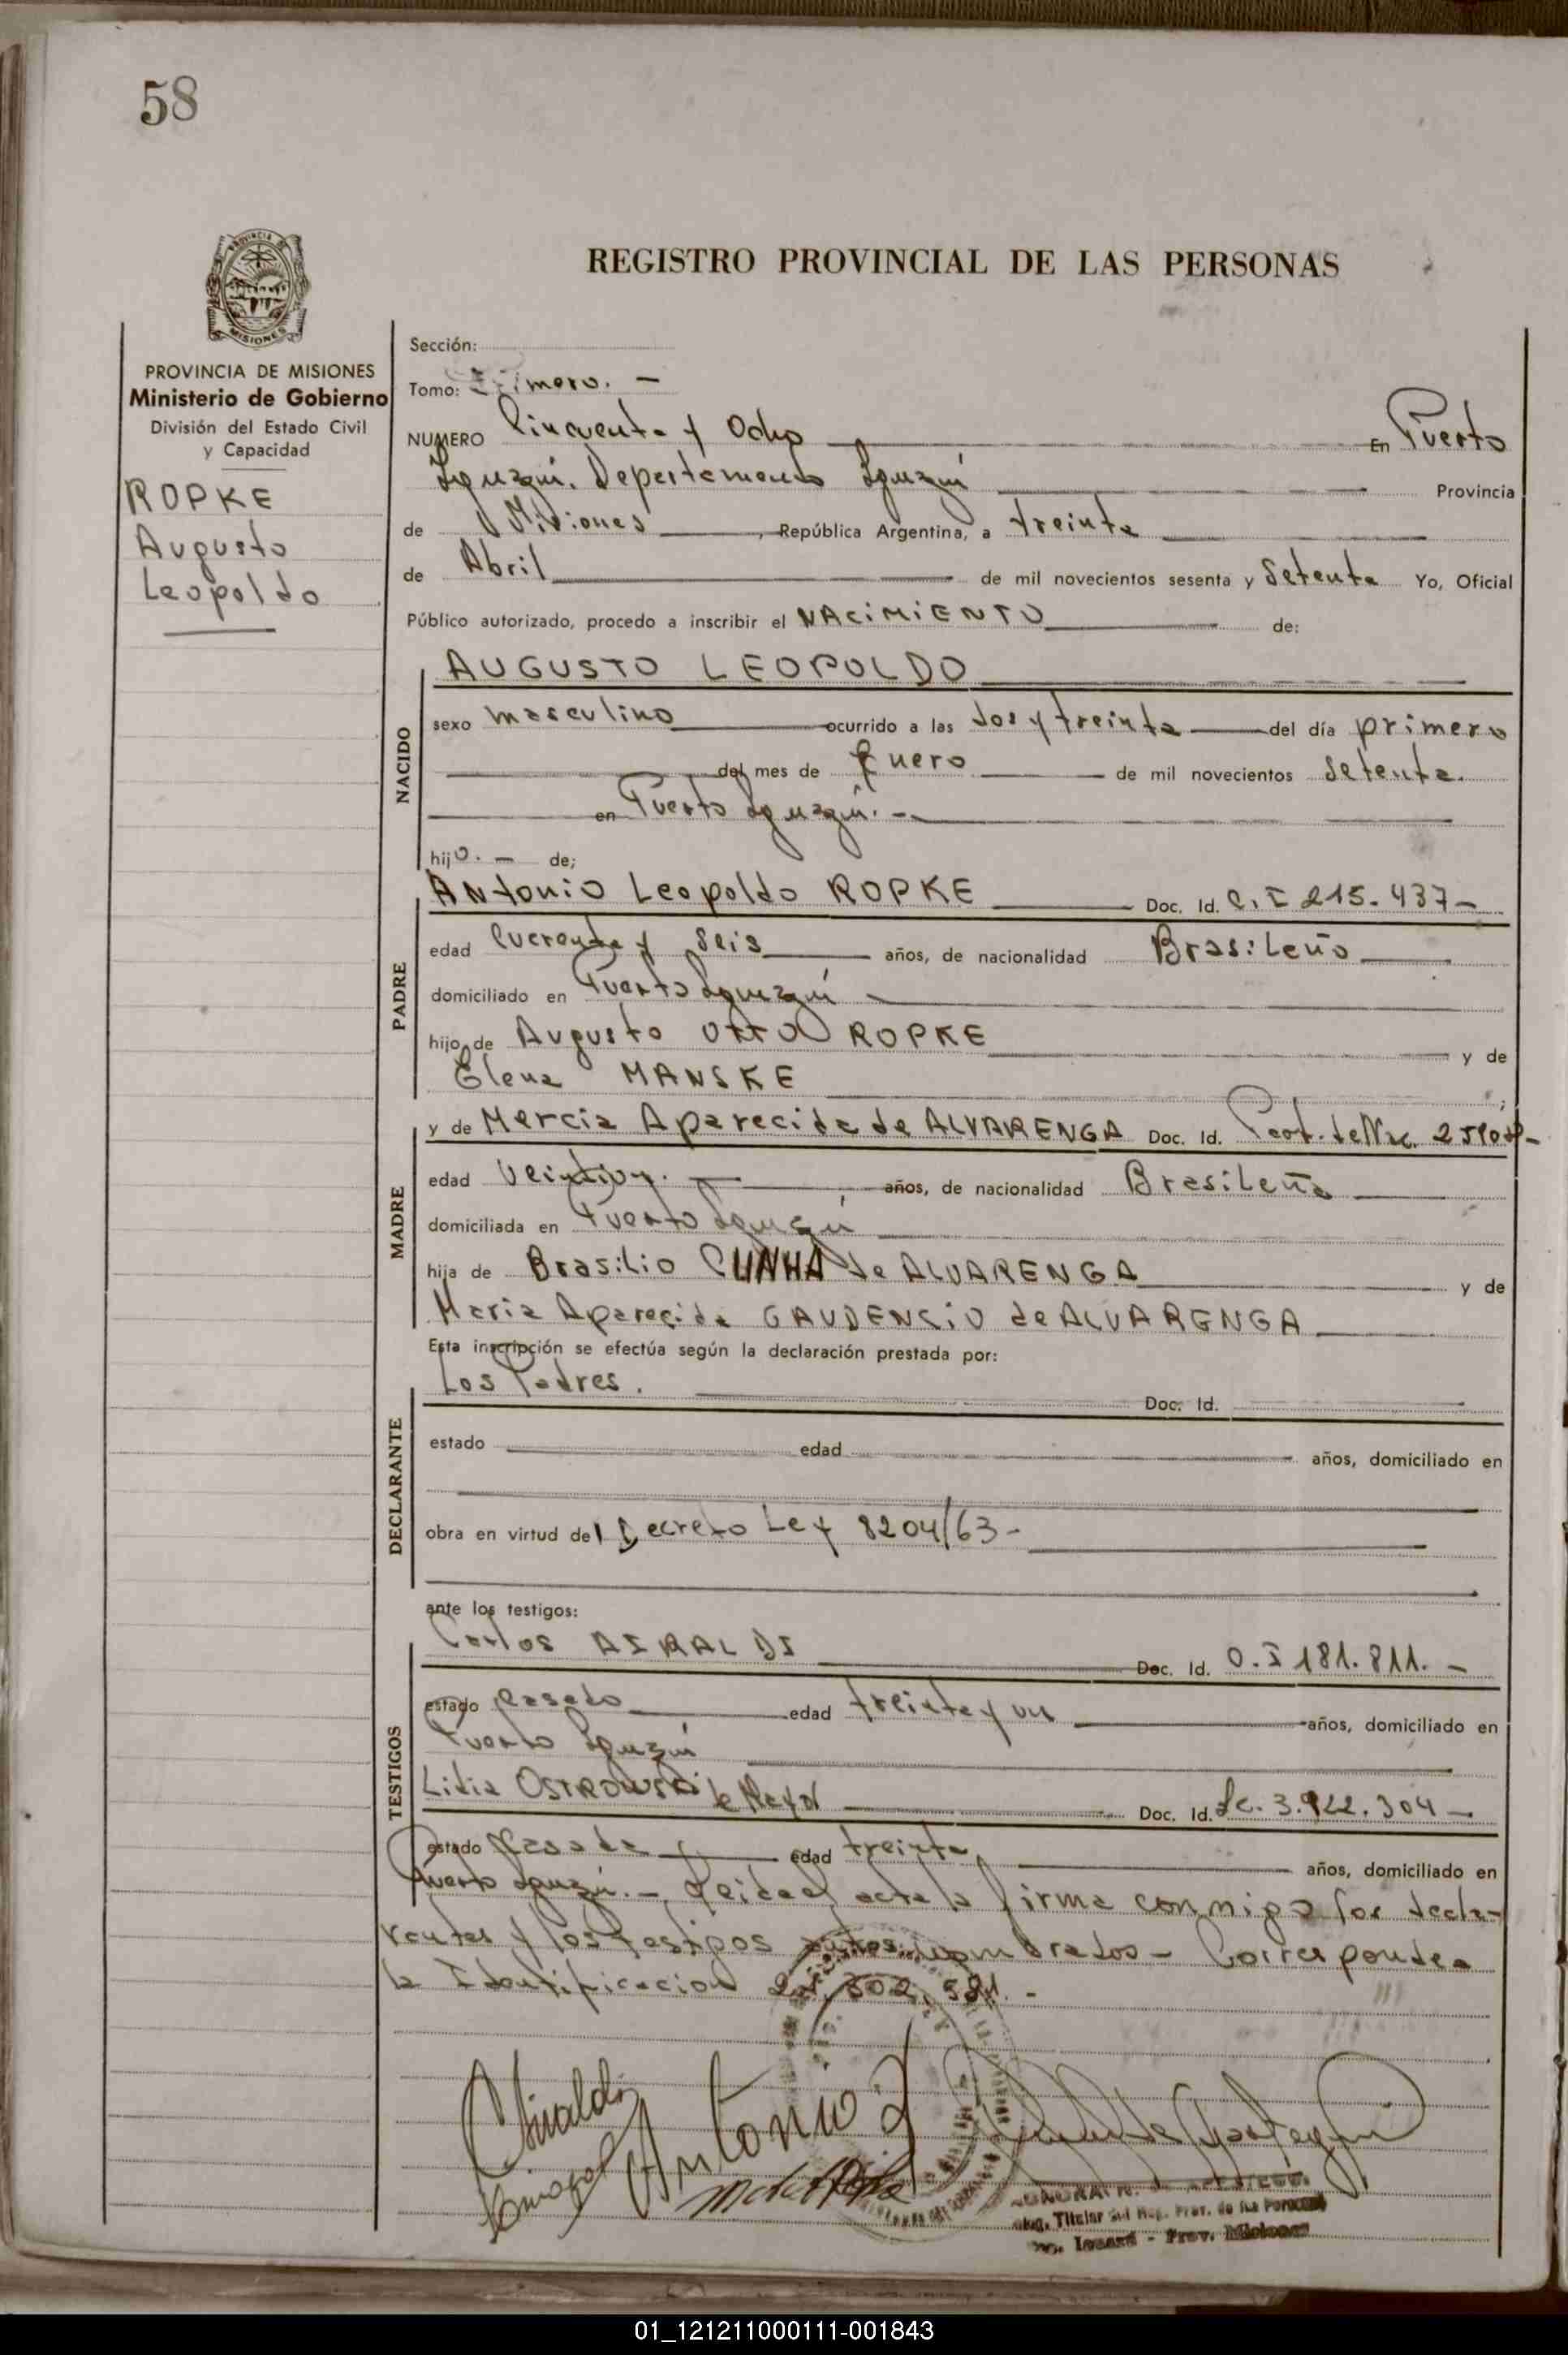 58
PROVINCIA DE
MISIONES
REGISTRO PROVINCIAL DE LAS PERSONAS
PROVINCIA DE MISIONES
Ministerio de Gobierno
División del Estado Civil
y Capacidad
ROPKE
Augusto
Leopoldo
Sección:
Tomo: Primero. -
NUMERO Cincuenta y Ocho En Puerto
Iguazú. Departamento Iguazú Provincia
de Misiones, República Argentina, a treinta
de Abril de mil novecientos sesenta y Setenta Yo, Oficial
Público autorizado, procedo a inscribir el NACiMiENTO de:
NACIDO
AUGUSTO LEOPOLDO
sexo masculino ocurrido a las dos y treinta del día primero
del mes de Enero de mil novecientos Setenta.
en Puerto Iguazú. -
hijo. - de;
PADRE
Antonio Leopoldo ROPKE Doc. Id. C.I 215.437-
edad Cuarenta y Seis años, de nacionalidad Brasileño
domiciliado en Puerto Iguazú
hijo de Augusto Otto ROPKE y de
Elena MANSKE ;
MADRE
y de Mercia Aparecida de ALVARENGA Doc. Id. Part. de Nac.
edad años, de nacionalidad Brasileña
domiciliada en Puerto Iguazú
hija de Brasilio CUNHA de ALVARENGA y de
Maria Aparecida GAUDENCIO de ALVARENGA
Esta inscripción se efectúa según la declaración prestada por:
DECLARANTE
Los Padres. Doc. Id.
estado edad años, domiciliado en
obra en virtud del Decreto Ley 8204/63-
ante los testigos:
TESTIGOS
Carlos AIRALDI Doc. Id. C.I 181.811. -
estado Casado edad treinta y un años, domiciliado en
Puerto Iguazú
Lidia OSTROWSKI de Doc. Id. LC. 3.922.304 -
estado Casada edad treinta años, domiciliado en
Puerto Iguazú. - Leida el acta la firma conmigo los decla-
rantes y los testigos antes nombrados - Corresponde a
la Identificacion 21.302.581. -
Antonio
Titular del Reg. Prov. de las Personas
- Prov. Misiones
01_121211000111-001843